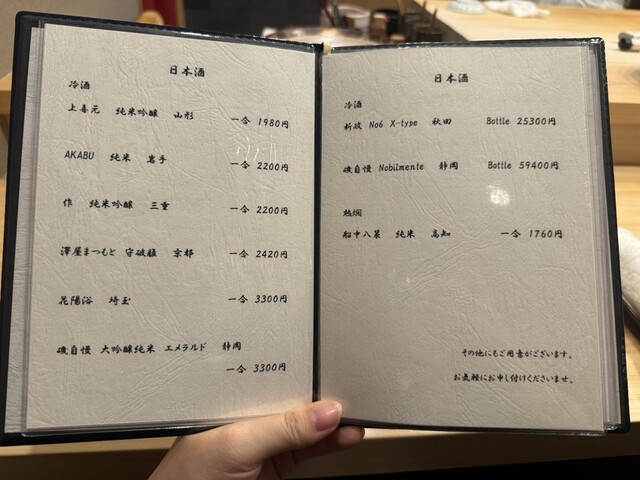 日本酒
冷酒
上喜元 純米吟醸 山形 一合 1980円
AKABU 純米 岩手 一合 2200円
作 純米吟醸 三重 一合 2200円
澤屋まつもと 守破離 京都 一合 2420円
花陽浴 埼玉 一合 3300円
磯自慢 大吟醸純米 エメラルド 静岡
一合 3300円
日本酒
冷酒
新政 No6 X-type 秋田 Bottle 25300円
磯自慢 Nobilmente 静岡 Bottle 59400円
熱燗
船中八策 純米 高知 一合 1760円
その他にもご用意がございます。
お気軽にお申し付けくださいませ。